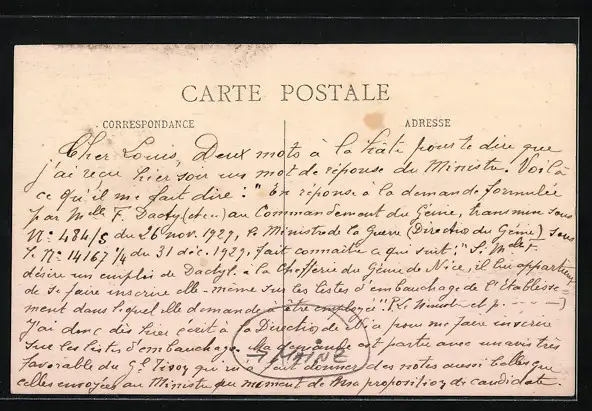 CARTE POSTALE
CORRESPONDANCE
ADRESSE
Cher Louis, Deux mots à la hâte pour te dire que
j'ai reçu hier soir un mot de réponse du Ministre. Voilà
ce qu'il me fait dire : " En réponse à la demande formulée
par Melle F. Dacty au Commandement du Génie, transmise sous
N° 484/S du 26 nov. 1929, le Ministre de la Guerre (Direction du Génie) sous
le N° 14167 1/4 du 31 déc. 1929, fait connaître ce qui suit : " Si Melle F.
désire un emploi de Dactyl. à la Chefferie du Génie de Nice, il lui appartient
de se faire inscrire elle-même sur les listes d'embauchage de l'Etablisse
ment dans lequel elle demande à être employée" P. Le Ministre et p. - - - -)
J'ai donc dès hier écrit à la Direction de Nice pour me faire inscrire
sur les listes d'embauchage. Ma demande est partie avec un avis très
favorable du Gl qui m'a fait donner des notes aussi belles que
celles envoyées au Ministre au moment de ma proposition de candidate
MAINE